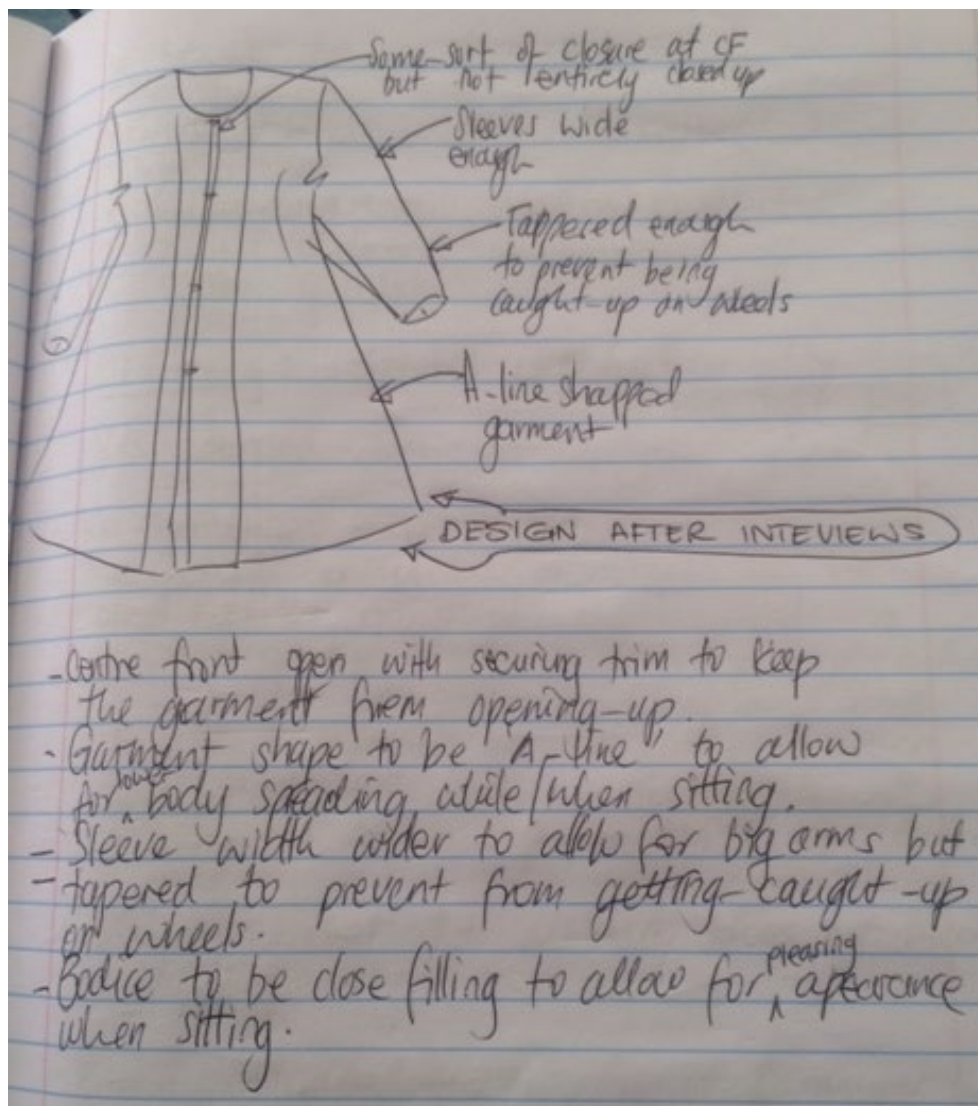 Some sort of closure at CF
but not entirely closed up
Sleeves wide
enough
Tappered enough
to prevent being
caught-up on wheels
A-line shapped
garment
DESIGN AFTER INTEVIEWS
- Centre front open with securing trim to keep
the garment from opening-up.
- Garment shape to be "A-line" to allow
for lower body spreading while/when sitting.
- Sleeve width wider to allow for big arms but
- tapered to prevent from getting-caught-up
on wheels.
- Bodice to be close fitting to allow for pleasing apearance
when sitting.